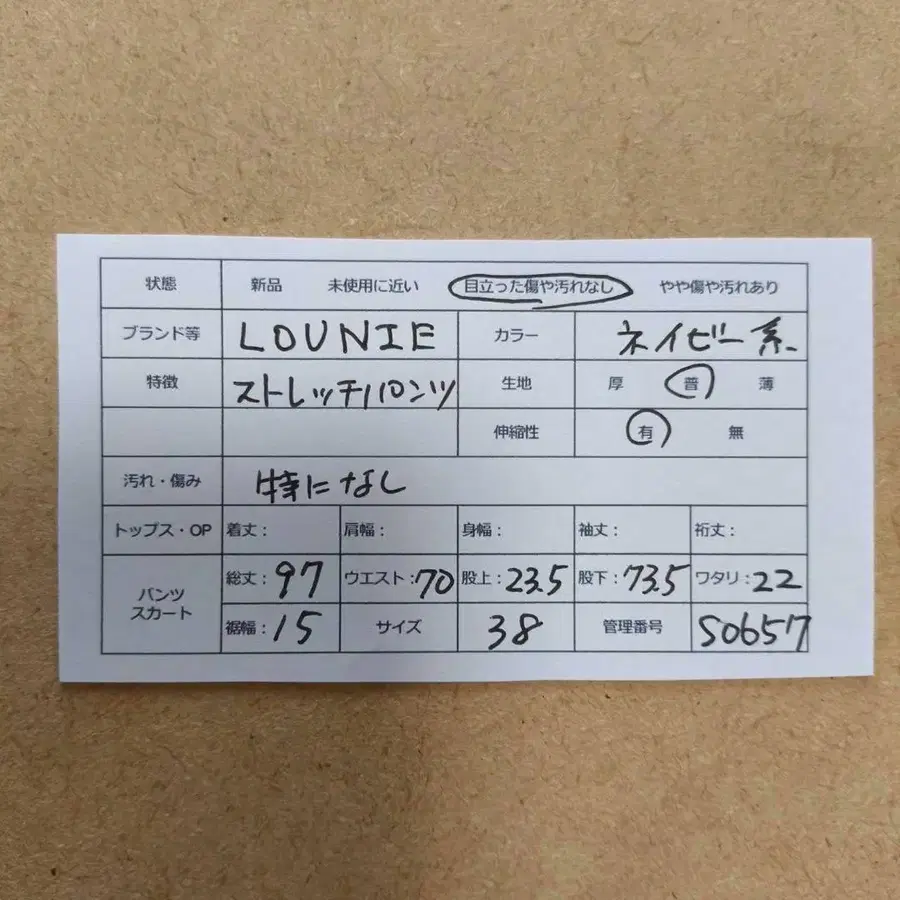 状態 新品 未使用に近い 目立った傷や汚れなし やや傷や汚れあり
ブランド等 LOUNIE カラー ネイビー系
特徴 ストレッチパンツ 生地 厚 普 薄
伸縮性 有 無
汚れ・傷み 特になし
トップス・OP 着丈: 肩幅: 身幅: 袖丈: 裄丈:
パンツ スカート 総丈:97 ウエスト:70 股上:23.5 股下:73.5 ワタリ:22
裾幅:15 サイズ 38 管理番号 S0657